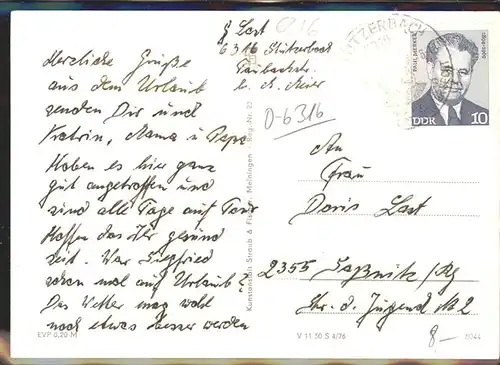 Herzliche Grüße
aus dem Urlaub
senden Dir und
Katrin, Mama u Papa
Haben es hier ganz
gut angetroffen und
sind alle Tage auf Tour
Hoffen das Ihr gesund
seit. War Siegfried
schon mal auf Urlaub?
Das Wetter mag wohl
noch etwas besser werden
EVP 0,20 M
Last
6316 Stützerbach
b. K. Meier
6316
0-6316
STÜTZERBACH
PAUL MERKER
1894-1969
DDR 10
An
Frau
Doris Last
2355 Saßnitz/Rg
Str. d. Jugend
8-
Kunstanstalt Straub & Fischer Meiningen
V 11 50 S 4/76
8044